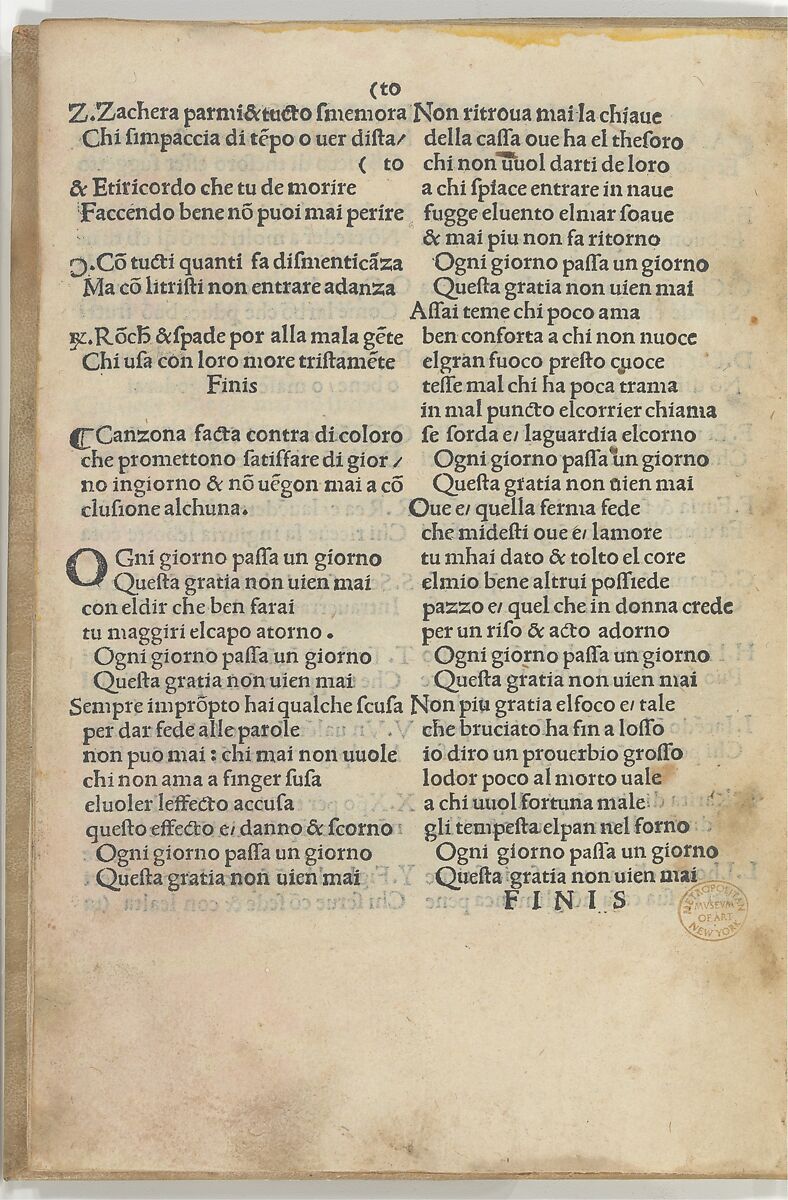 (to
Z.Zachera parmi&tucto ſmemora
Chi ſimpaccia di tēpo o uer diſta/
( to
& Etiricordo che tu de morire
Faccendo bene nō puoi mai perire
Ɔ.Cō tucti quanti fa diſmenticāza
Ma cō litriſti non entrare adanza
ꝶ.Rōcħ &ſpade por alla mala gēte
Chi uſa con loro more triſtamēte
Finis
¶Canzona facta contra di coloro
che promettono ſatiſfare di gior/
no ingiorno & nō uēgon mai a cō
cluſione alchuna.
OGni giorno paſſa un giorno
Queſta gratia non uien mai
con eldir che ben farai
tu maggiri elcapo atorno.
Ogni giorno paſſa un giorno
Queſta gratia non uien mai
Sempre imprōpto hai qualche ſcuſa
per dar fede alle parole
non puo mai : chi mai non uuole
chi non ama a finger ſuſa
eluoler leffecto accuſa
queſto effecto e/ danno & ſcorno
Ogni giorno paſſa un giorno
Queſta gratia non uien mai
Non ritroua mai la chiaue
della caſſa oue ha el theſoro
chi non uuol darti de loro
a chi ſpiace entrare in naue
fugge eluento elmar ſoaue
& mai piu non fa ritorno
Ogni giorno paſſa un giorno
Queſta gratia non uien mai
Aſſai teme chi poco ama
ben conforta a chi non nuoce
elgran fuoco preſto cuoce
teſſe mal chi ha poca trama
in mal puncto elcorrier chiama
ſe ſorda e/ laguardia elcorno
Ogni giorno paſſa un giorno
Queſta gratia non uien mai
Oue e/ quella ferma fede
che mideſti oue e/ lamore
tu mhai dato & tolto el core
elmio bene altrui poſſiede
pazzo e/ quel che in donna crede
per un riſo & acto adorno
Ogni giorno paſſa un giorno
Queſta gratia non uien mai
Non piu gratia elfoco e/ tale
che bruciato ha fin a loſſo
io diro un prouerbio groſſo
lodor poco al morto uale
a chi uuol fortuna male
gli tempeſta elpan nel forno
Ogni giorno paſſa un giorno
Queſta gratia non uien mai
FINIS
METROPOLITAN
MVSEVM
OF ART
NEW YORK